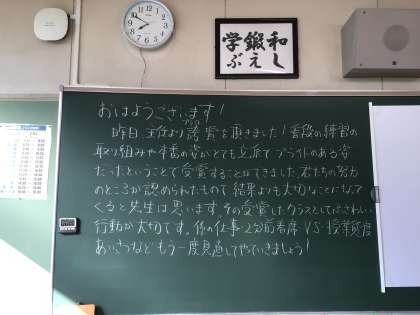 和し
鍛え
学ぶ
おはようございます!
昨日、主任より誇賞を頂きました!普段の練習の
取り組みや本番の姿がとても立派でプライドのある姿
だったということで受賞することができました。君たちの努力
のところが認められたもので結果よりも大切なことになって
くると先生は思います。その受賞したクラスとしてふさわしい
行動が大切です。係の仕事・2分前着席 VS・授業態度
あいさつなどもう一度見直してやっていきましょう!